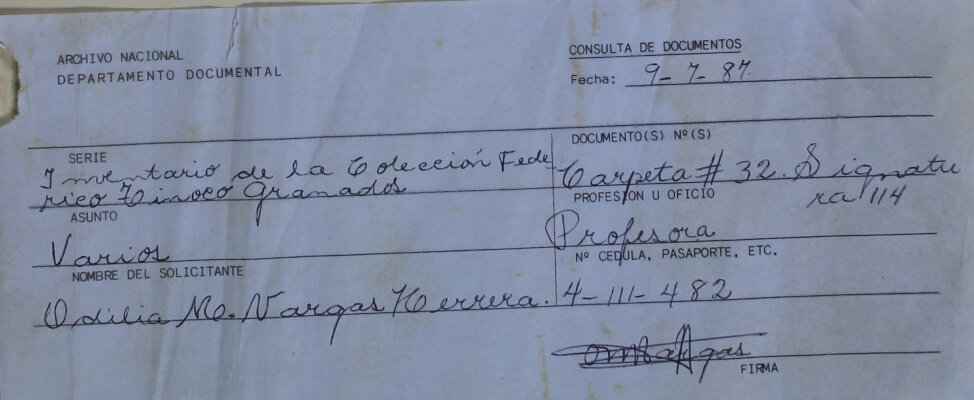 ARCHIVO NACIONAL
DEPARTAMENTO DOCUMENTAL
CONSULTA DE DOCUMENTOS
Fecha: 9-7-87.
SERIE
Inventario de la Colección Fede
rico Tinoco Granados
DOCUMENTO(S) Nº(S)
Carpeta # 32. Signatu
ra 114
ASUNTO
Varios
PROFESION U OFICIO
Profesora
NOMBRE DEL SOLICITANTE
Odilia Ma. Vargas Herrera.
Nº CEDULA, PASAPORTE, ETC.
4-111-482
FIRMA